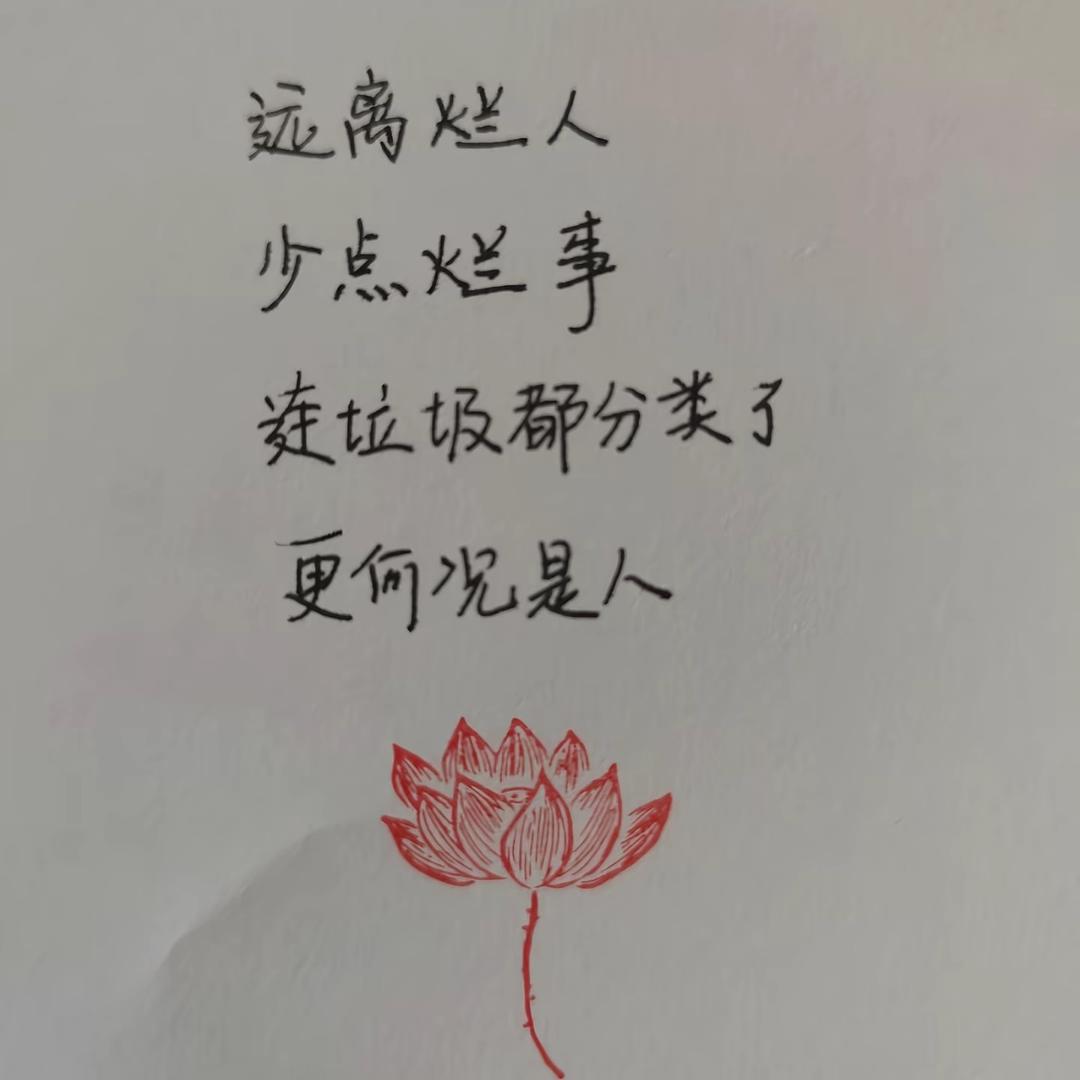 远离烂人
少点烂事
连垃圾都分类了
更何况是人